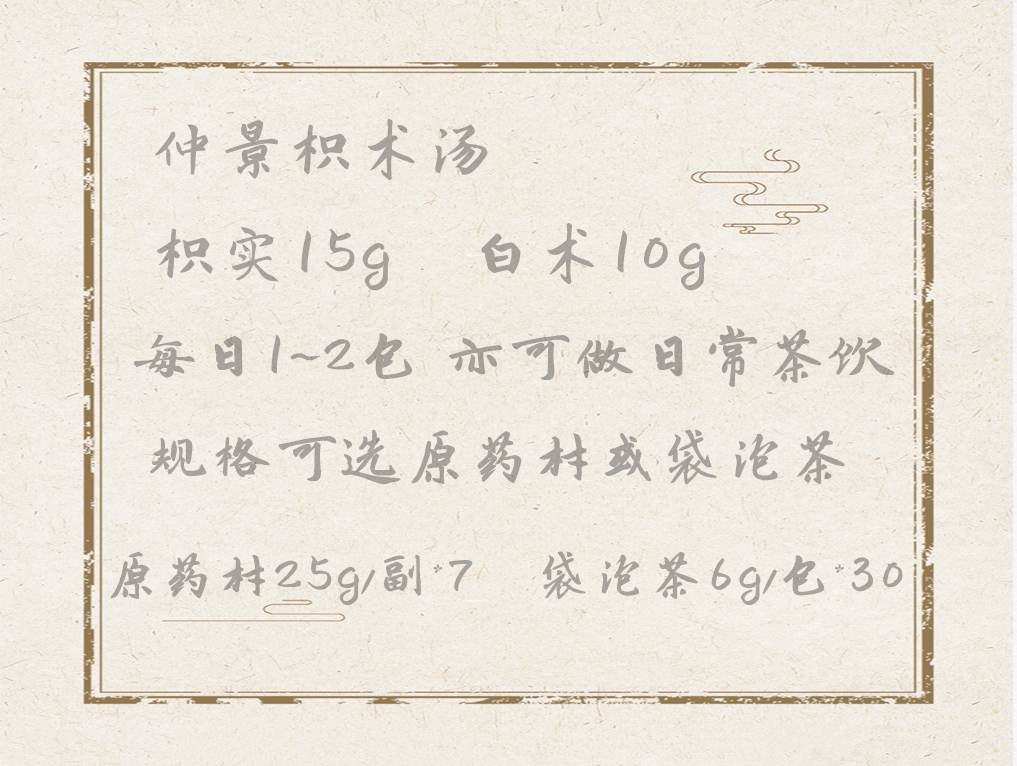 仲景枳术汤
枳实15g 白术10g
每日1~2包 亦可做日常茶饮
规格可选原药材或袋泡茶
原药材25g/副*7 袋泡茶6g/包*30